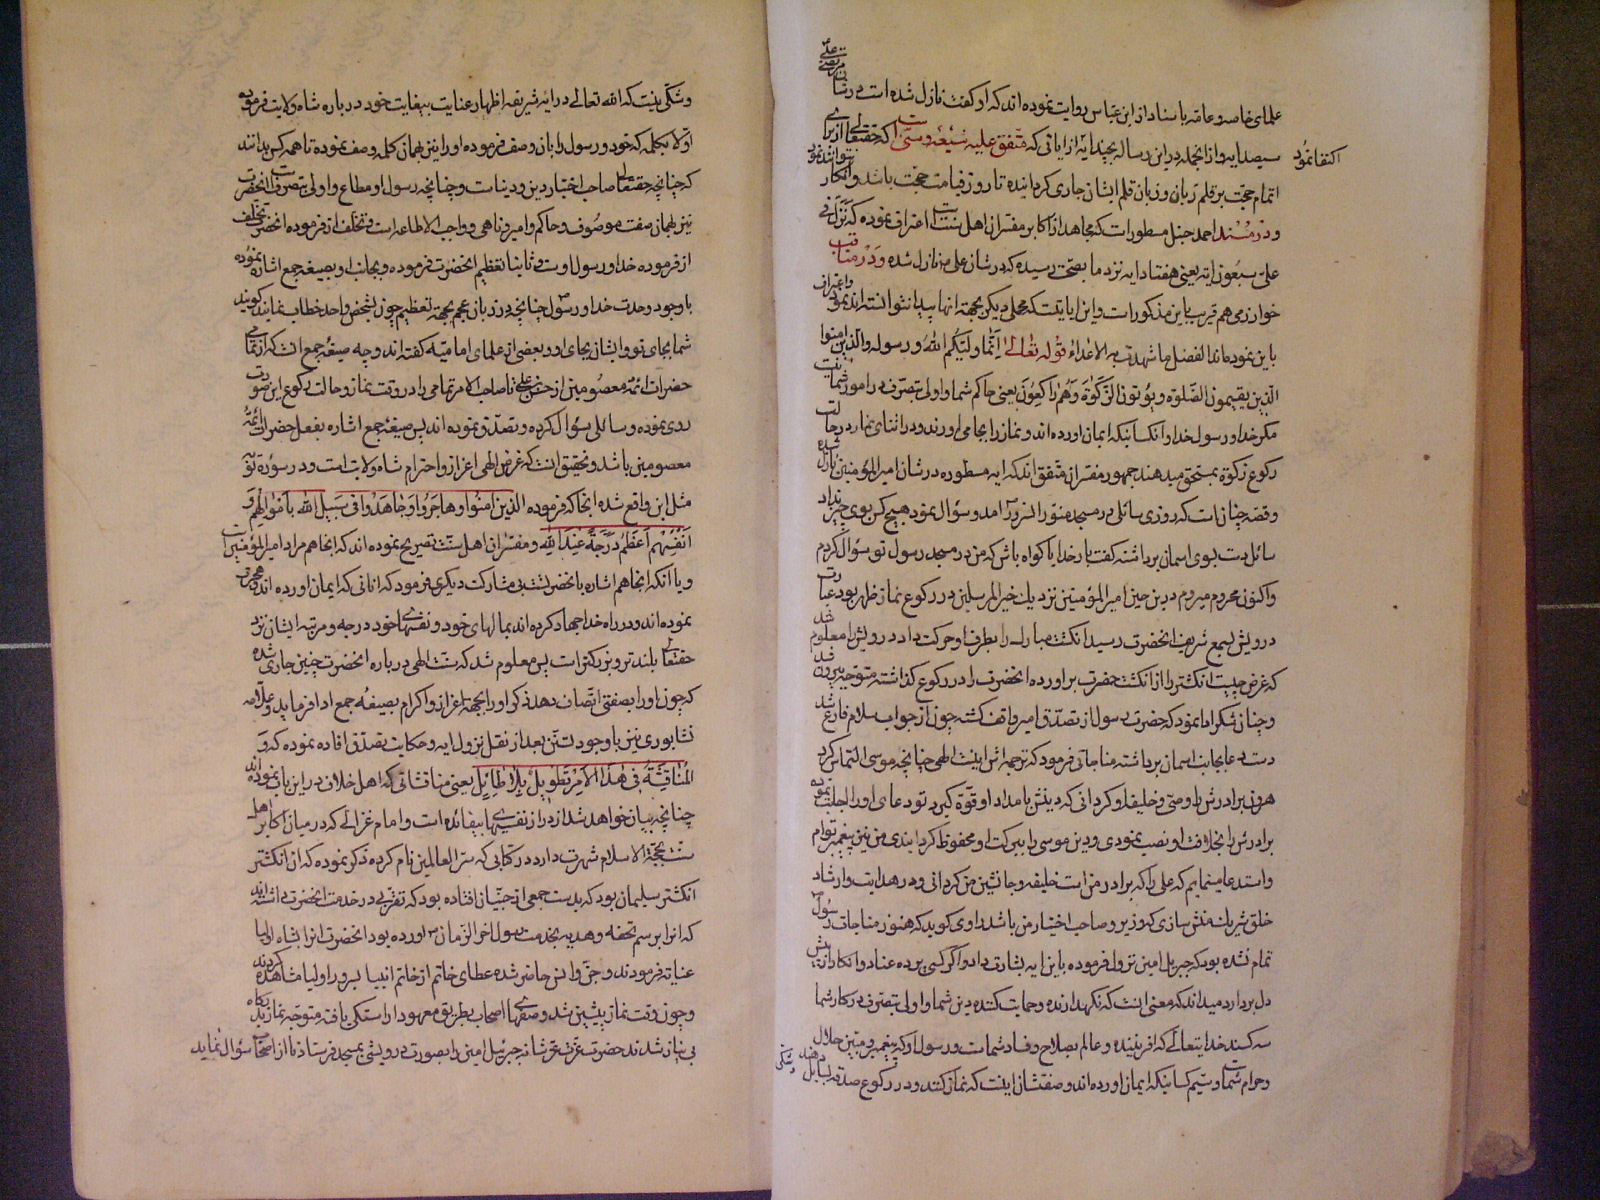 علمای خاصه و عامه باسناد از ابن عباس روایت نموده اند که او گفت نازل شده است در شان مرتضی علی
سیصد ایه و از انجمله در این رساله بچند ایه از ایاتی که متفق علیه شیعه و سنی است اکتفا نمود که حقتعالی از برای
اتمام حجت بر قلم زبان و زبان قلم ایشان جاری گردانیده تا روز قیامت حجت باشد و انکار نتوانند نمود
و در مسند احمد حنبل مسطور است که مجاهد از اکابر مفسران اهل سنت است اعتراف نموده که نزل فی
علی سبعون ایة یعنی هفتاد ایه نزد ما بصحت رسیده که در شان علی نازل شده و در مناقب
خوارزمی هم قریب باین مذکور است و این ایاتیست که بجهة انها پیدا نتوانسته اند نمود و اعتراف
باین نموده اند الفضل ما شهدت به الاعداء قوله تعالی انما ولیکم الله و رسوله والذین امنوا
الذین یقیمون الصلوة و یؤتون الزکوة وهم راکعون یعنی حاکم شما و اولی بتصرف در امور شما نیست
مگر خدا و رسول خدا و آنکسانیکه ایمان اورده اند و نماز را بجا می اورند و در اثنای نماز در حالت
رکوع زکوة بمستحق میدهند جمهور مفسران متفق اند که ایه مسطوره در شان امیر المؤمنین نازل شده
و قصه چنان است که روزی سائلی در مسجد در آمد و سؤال نمود هیچ کس بوی چیز نداد
سائل دست بسوی اسمان برداشته گفت بار خدایا گواه باش که من در مسجد رسول تو سؤال کردم
و اکنون محروم میروم درین حین امیر المؤمنین نزدیک خیر المرسلین در رکوع نماز ظهر بود
درویش بسمع شریف انحضرت رسید انگشت مبارک را بطرف او حرکت داد درویش را معلوم شد
که غرض چیست انگشتر را از انگشت حضرت بر اورده انحضرت را در رکوع گذاشته متوجه بیرون شد
و چنان شکر ادا نمود که حضرت رسول از تصدق امیر واقف گشته چون از جواب سلام فارغ شد
دست دعا بجانب اسمان برداشته مناجاتی فرمود که ترجمه اش اینست الهی چنانچه موسی التماس کرد
هرون برادرش را وصی و خلیفه او گردانی که دینش بامداد او قوة گیرد تو دعای او را اجابت نموده
برادرش را بخلافت او نصب نمودی و دین موسی را ببرکت او محفوظ گردانیدی من نیز پیغمبر توام
و استدعا مینمایم که علی را که برادر من است خلیفه و جانشین من گردانی و در هدایت و ارشاد
خلق شریک منش سازی که وزیر و صاحب اختیار من باشد راوی گوید که هنوز مناجات رسول
تمام نشده بود که جبریل امین نزول فرموده باین ایه بشارت داد و اگر کسی پرده عناد و انکار از پیش
دل بردارد میداند که معنی انست که نگهدارنده و حمایت کننده دین شما و اولی بتصرف در کار شما
سه کسند خدایتعالی که افریننده و عالم بصلاح و فساد شماست و رسول او که پیغمبر و مبین حلال
و حرام شماست و سیم کسانیکه ایمان اورده اند و صفتشان اینست که نماز کنند و در رکوع صدقه بسایل دهند و شکی
و شکی نیست که الله تعالی در این ایه شریفه اظهار عنایت بیغایت خود در باره شاه ولایت فرموده
اولا بکلمه که خود و رسول را بان وصف فرموده او را نیز بهمان کلمه وصف نموده تا همه کس بدانند
که چنانچه حقتعالی صاحب اختیار دین و دنیاست و چنانچه رسول او مطاع و اولی بتصرف است انحضرت
نیز بهمان صفت موصوف و حاکم و امیر و ناهی و واجب الاطاعه است و تخلف از فرموده انحضرت تخلف
از فرموده خدا و رسول اوست و ثانیا تعظیم انحضرت فرموده و بجانب او بصیغه جمع اشاره نموده
با وجود وحدت خدا و رسول چنانچه در زبان عجم بجهة تعظیم چون بشخص واحد خطاب نمایند گویند
شما بجای تو و ایشان بجای او و بعضی از علمای امامیه گفته اند وجه صیغه جمع انست که از تمامی
حضرات ائمه معصومین از حضرت علی تا صاحب الامر تمامی را در وقت نماز و حالت رکوع این صورت
روی نموده و سائلی سؤال کرده و تصدق نموده اند پس صیغه جمع اشاره بفعل حضرات ائمه
معصومین باشد و تحقیق انست که غرض الهی اعزاز و احترام شاه ولایت است و در سورة توبه
مثل این واقع شده انجا که فرموده الذین امنوا وهاجروا وجاهدوا فی سبیل الله باموالهم و
انفسهم اعظم درجة عند الله و مفسران اهل سنت تصریح نموده اند که انجا هم مراد امیر المؤمنین است
و با انکه انجا هم اشاره بانحضرتست بی مشارکت دیگری فرمود که انانی که ایمان اورده اند و هجرت
نموده اند و در راه خدا جهاد کرده اند بمالهای خود و نفسهای خود درجه و مرتبه ایشان نزد
حقتعالی بلندتر و بزرگتر است پس معلوم شد که سنت الهی در باره انحضرت چنین جاری شده
که چون او را بصفتی اتصاف دهد ذکر او را بجهة اعزاز و اکرام بصیغه جمع ادا فرماید و علامه
نشابوری نیز با وجود تسنن بعد از نقل نزول ایه و حکایت تصدق افاده نموده که و
المناقشة فی هذا الامر تطویل بلا طائل یعنی مناقشاتی که اهل خلاف در این باب نموده اند
چنانچه بیان خواهد شد از دراز نفسیهای بیفائده است و امام غزالی که در میان اکابر اهل
سنت بحجة الاسلام شهرت دارد در کتابی که سر العالمین نام کرده ذکر نموده که ان انگشتر
انگشتر سلیمان بود که بدست جمعی از جنیان افتاده بود که تقربی در خدمت انحضرت داشته اند
که انرا برسم تحفه و هدیه بخدمت رسول اخر الزمان اورده بود انحضرت انرا بشاه اولیا
عنایه فرمودند و جن و انس حاضر شده عطای خاتم از خاتم انبیا بسرور اولیا مشاهده کردند
و چون وقت نماز پیشین شد و صفهای اصحاب بطریق معهود اراستگی یافته متوجه نماز بدرگاه
بی نیاز شدند حضرت عزت عز شانه جبرئیل امین را بصورت درویشی بمسجد فرستاد تا از اصحاب سؤال نماید